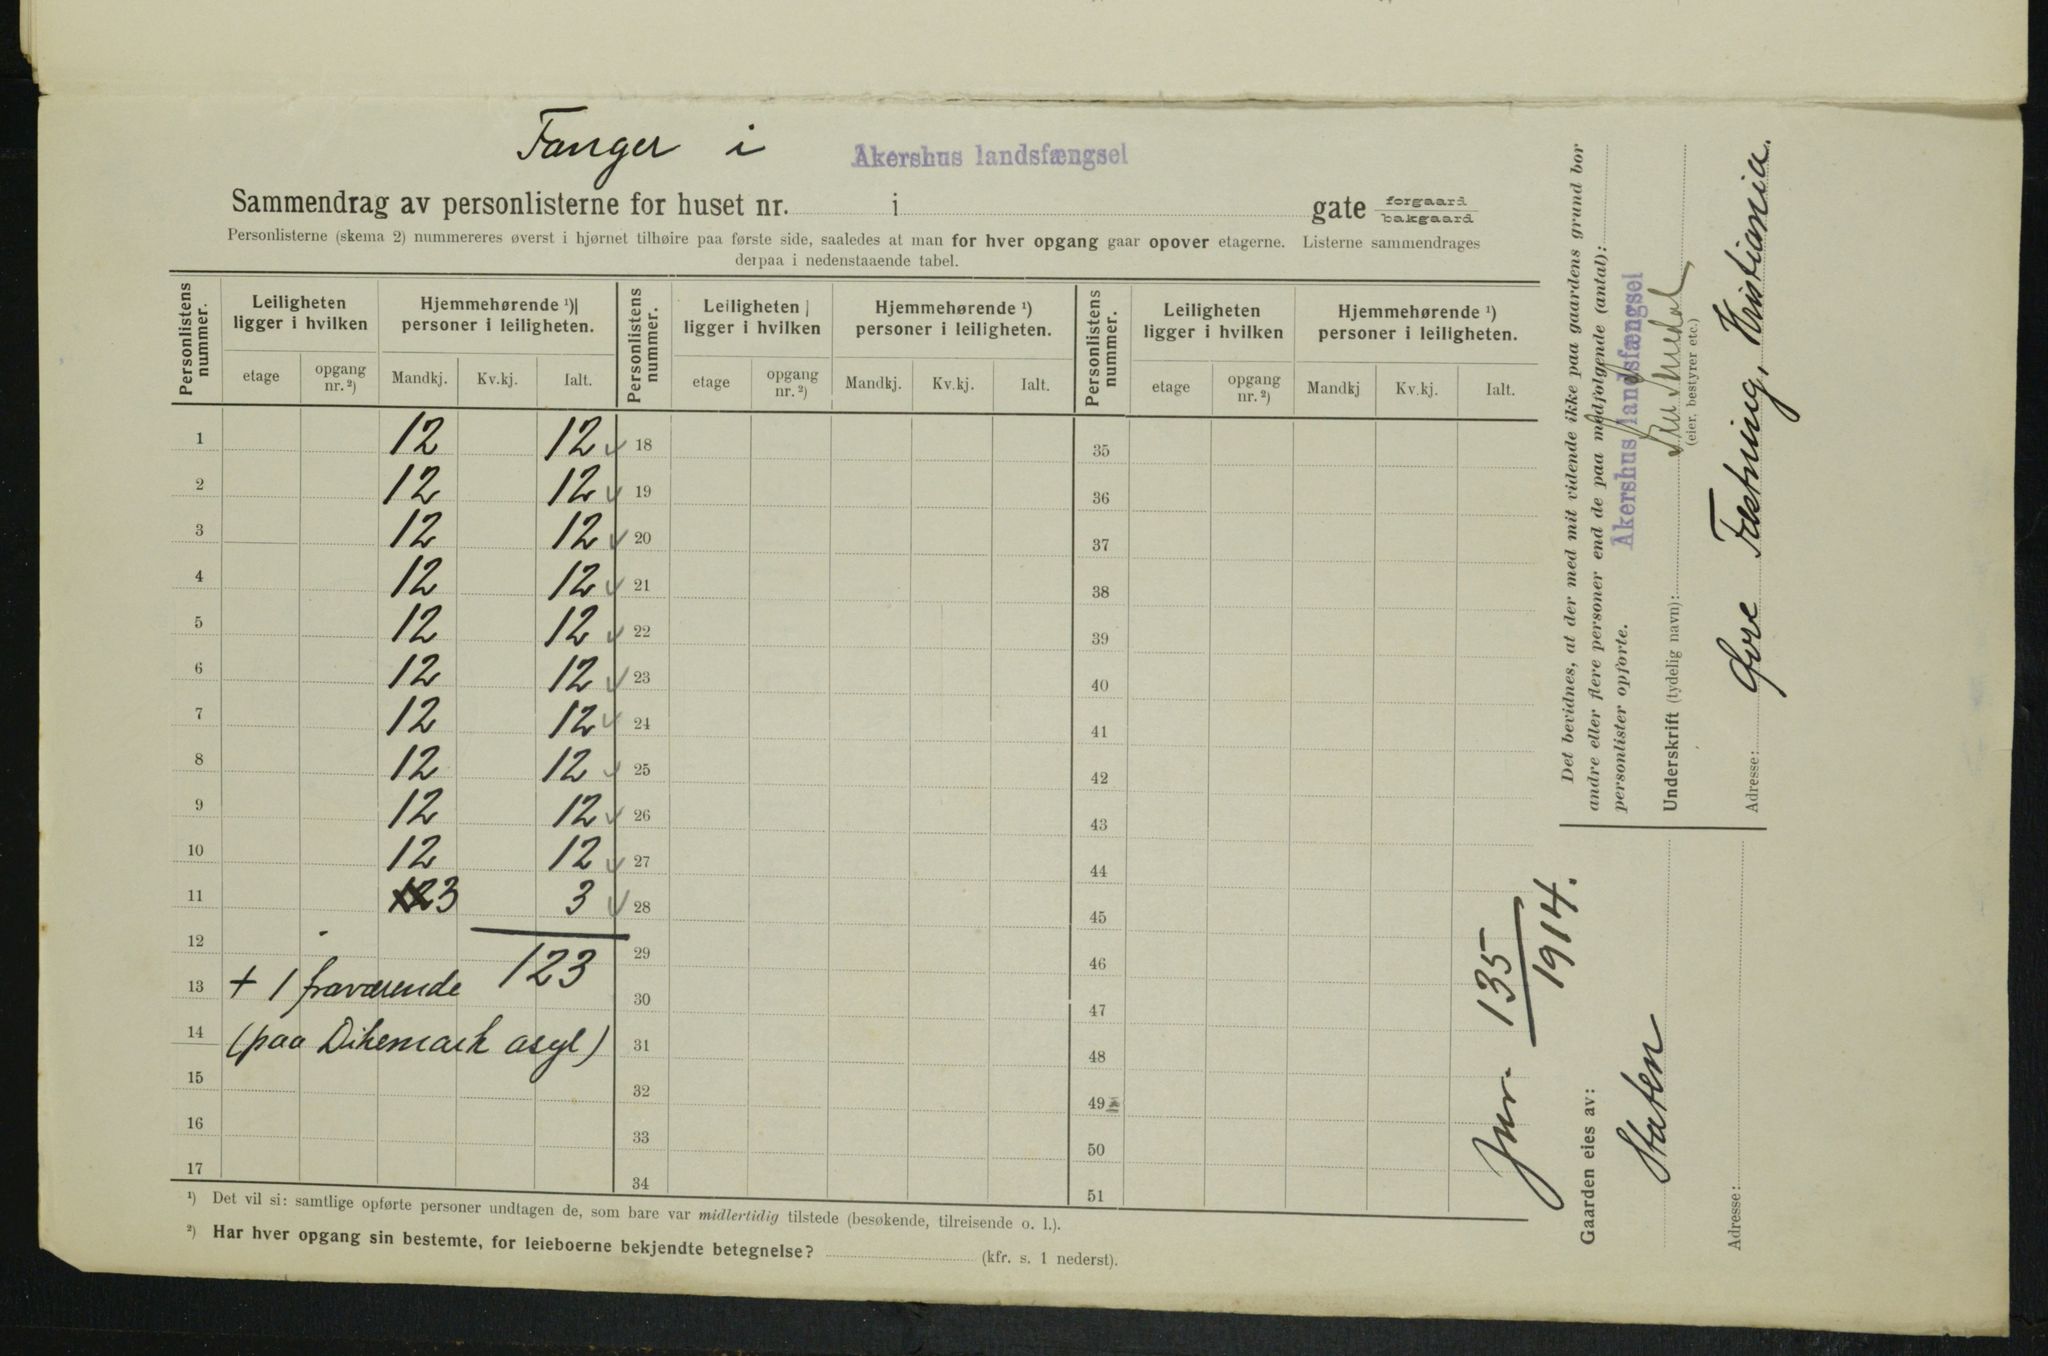 Fanger i Akershus landsfængsel
Sammendrag av personlisterne for huset nr. i gate forgaard bakgaard
Personlisterne (skema 2) nummereres øverst i hjørnet tilhøire paa første side, saaledes at man for hver opgang gaar opover etagerne. Listerne sammendrages
derpaa i nedenstaaende tabel.
Personlistens nummer. Leiligheten ligger i hvilken Hjemmehørende ¹) personer i leiligheten. Personlistens nummer. Leiligheten ligger i hvilken Hjemmehørende ¹) personer i leiligheten. Personlistens nummer. Leiligheten ligger i hvilken Hjemmehørende ¹) personer i leiligheten.
etage opgang nr. ²) Mandkj. Kv.kj. Ialt. etage opgang nr. ²) Mandkj. Kv.kj. Ialt. etage opgang nr. ²) Mandkj Kv.kj. Ialt.
1 12 12 18 35
2 12 12 19 36
3 12 12 20 37
4 12 12 21 38
5 12 12 22 39
6 12 12 23 40
7 12 12 24 41
8 12 12 25 42
9 12 12 26 43
10 12 12 27 44
11 3 3 28 45
12 123 29 46
13 + 1 fraværende 30 47
14 (paa Dikemark asyl) 31 48
15 32 49
16 33 50
17 34 51
¹) Det vil si: samtlige opførte personer undtagen de, som bare var midlertidig tilstede (besøkende, tilreisende o. l.).
²) Har hver opgang sin bestemte, for leieboerne bekjendte betegnelse? (kfr. s. 1 nederst).
Jnr. 135/1914.
Det bevidnes, at der med mit vidende ikke paa gaardens grund bor
andre eller flere personer end de paa medfølgende (antal):
personlister opførte.
Akershus landsfængsel
Underskrift (tydelig navn):
(eier, bestyrer etc.)
Adresse: Øvre Fæstning, Kristiania.
Gaarden eies av:
Staten
Adresse: